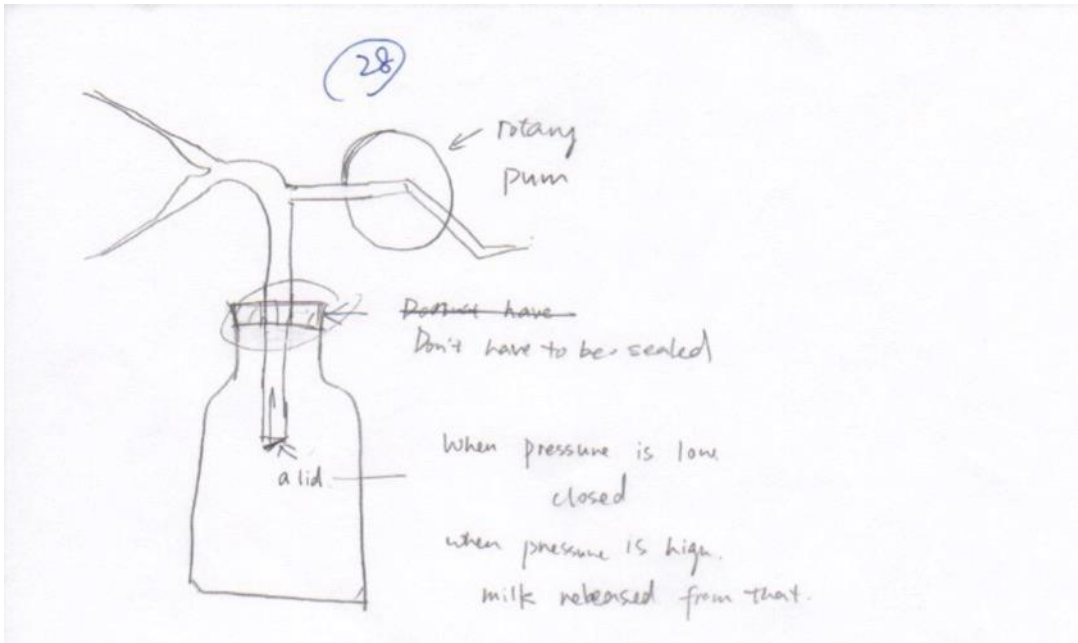 28
rotary
pum
Don't have
Don't have to be sealed
a lid
When pressure is low
closed
when pressure is high.
milk released from that.